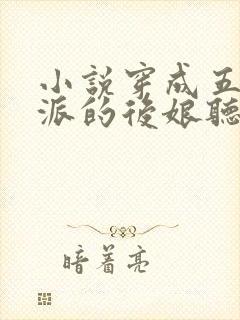 小說穿成五
派的後娘聽
暗著亮